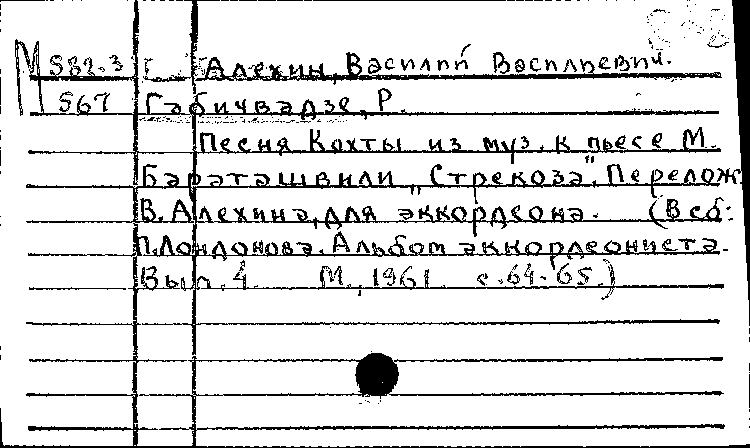 М 582.3 Алехин, Василий Васильевич.
567 Габичвадзе, Р.
Песня Кохты из муз. к пьесе М.
Бараташвили „Стрекоза". Перелож.
В. Алехина, для аккордеона. (В сб:
П. Лондонова. Альбом аккордеониста.
Вып. 4. М., 1961. с. 64-65.)